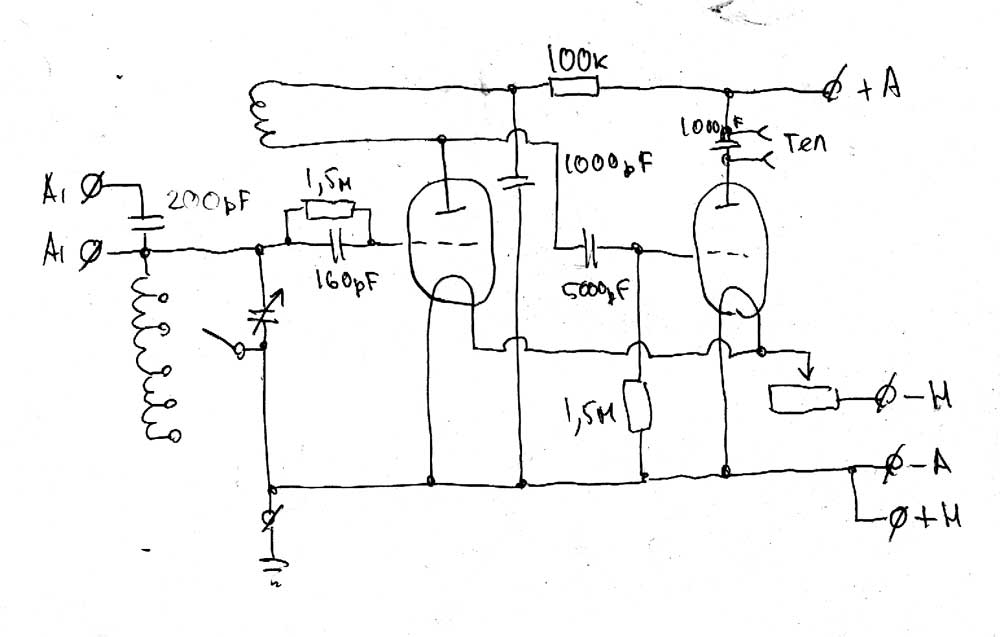 100к
+ A
1000pF
Тел
1000pF
A1
200pF
1,5м
A1
160pF
5000pF
1,5м
- H
- A
+ H